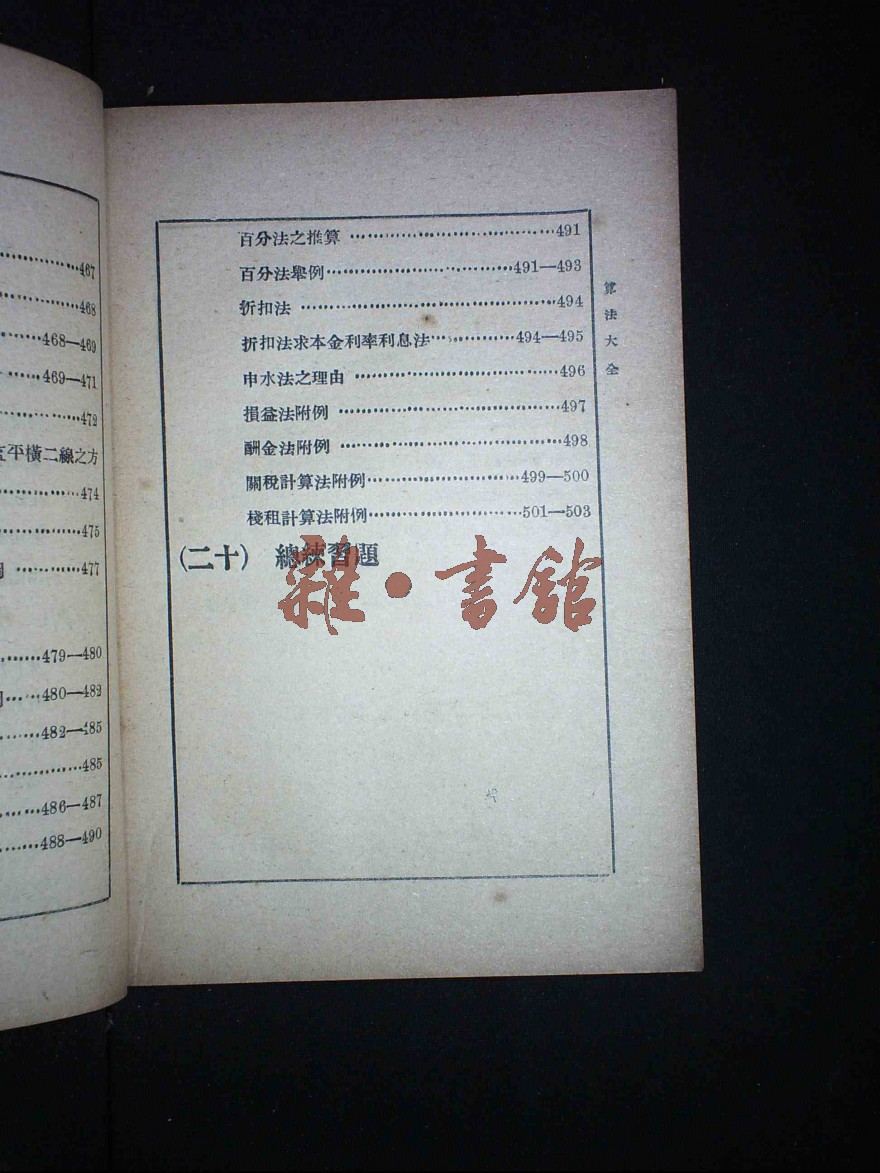 467
468
468—469
469—471
472
平橫二線之方
474
475
477
479—480
480—482
482—485
485
486—487
488—490
百分法之推算 491
百分法舉例 491—493
折扣法 494
折扣法求本金利率利息法 494—495
申水法之理由 496
損益法附例 497
酬金法附例 498
關稅計算法附例 499—500
棧租計算法附例 501—503
(二十) 總練習題
算法大全
雜·書館